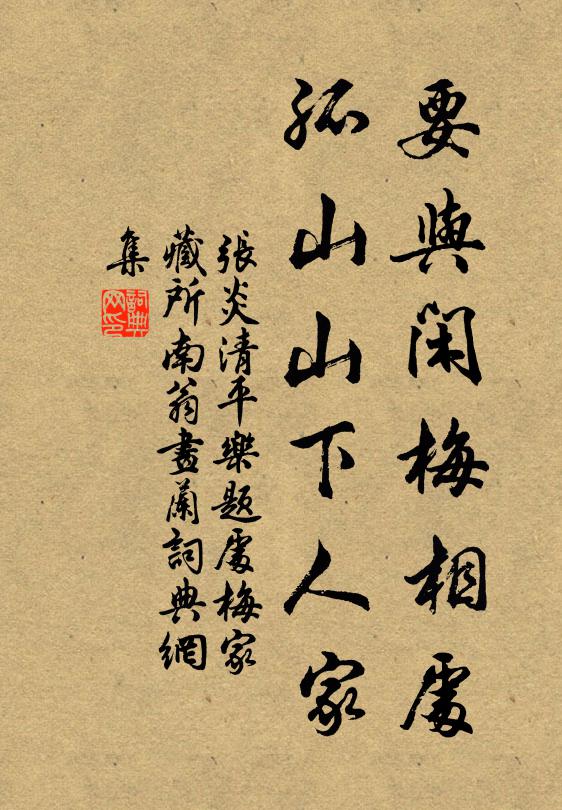 要與閑梅相處
孤山山下人家
張炎清平樂題處梅家
藏所南翁畫蘭詞典網
集
詞典
网印